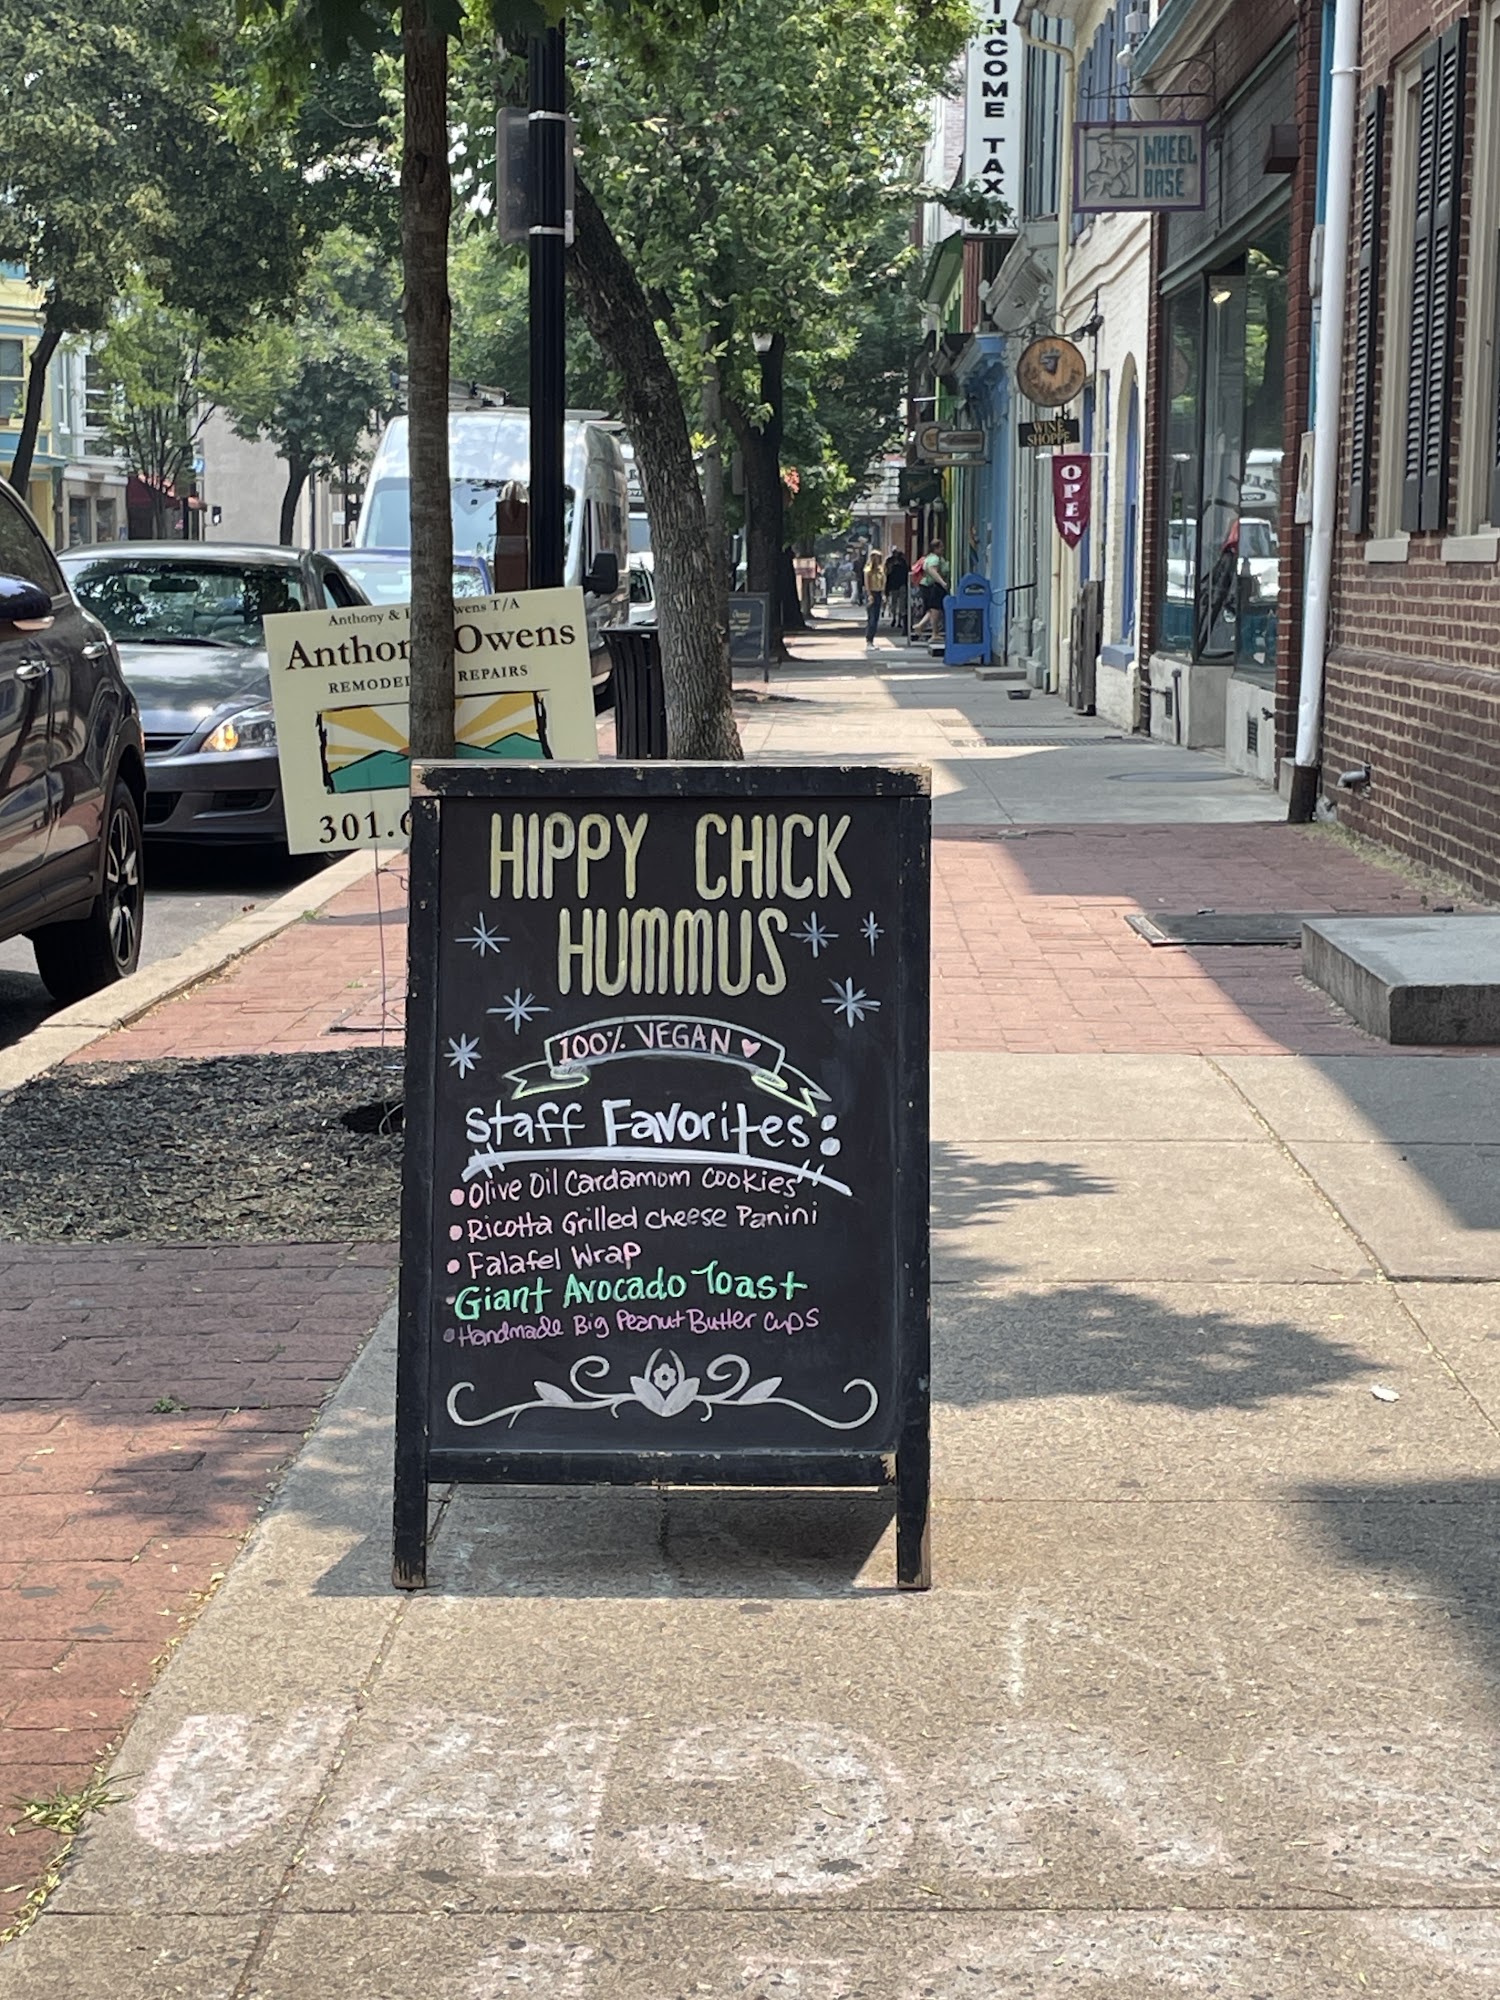 INCOME TAX
WHEEL
BASE
WINE
SHOPPE
OPEN
Anthony & wens T/A
Anthon Owens
REMODEL REPAIRS
301.
HIPPY CHICK
HUMMUS
100% VEGAN
Staff Favorites:
• Olive Oil Cardamom Cookies
• Ricotta Grilled Cheese Panini
• Falafel Wrap
• Giant Avocado Toast
• Handmade Big Peanut Butter Cups